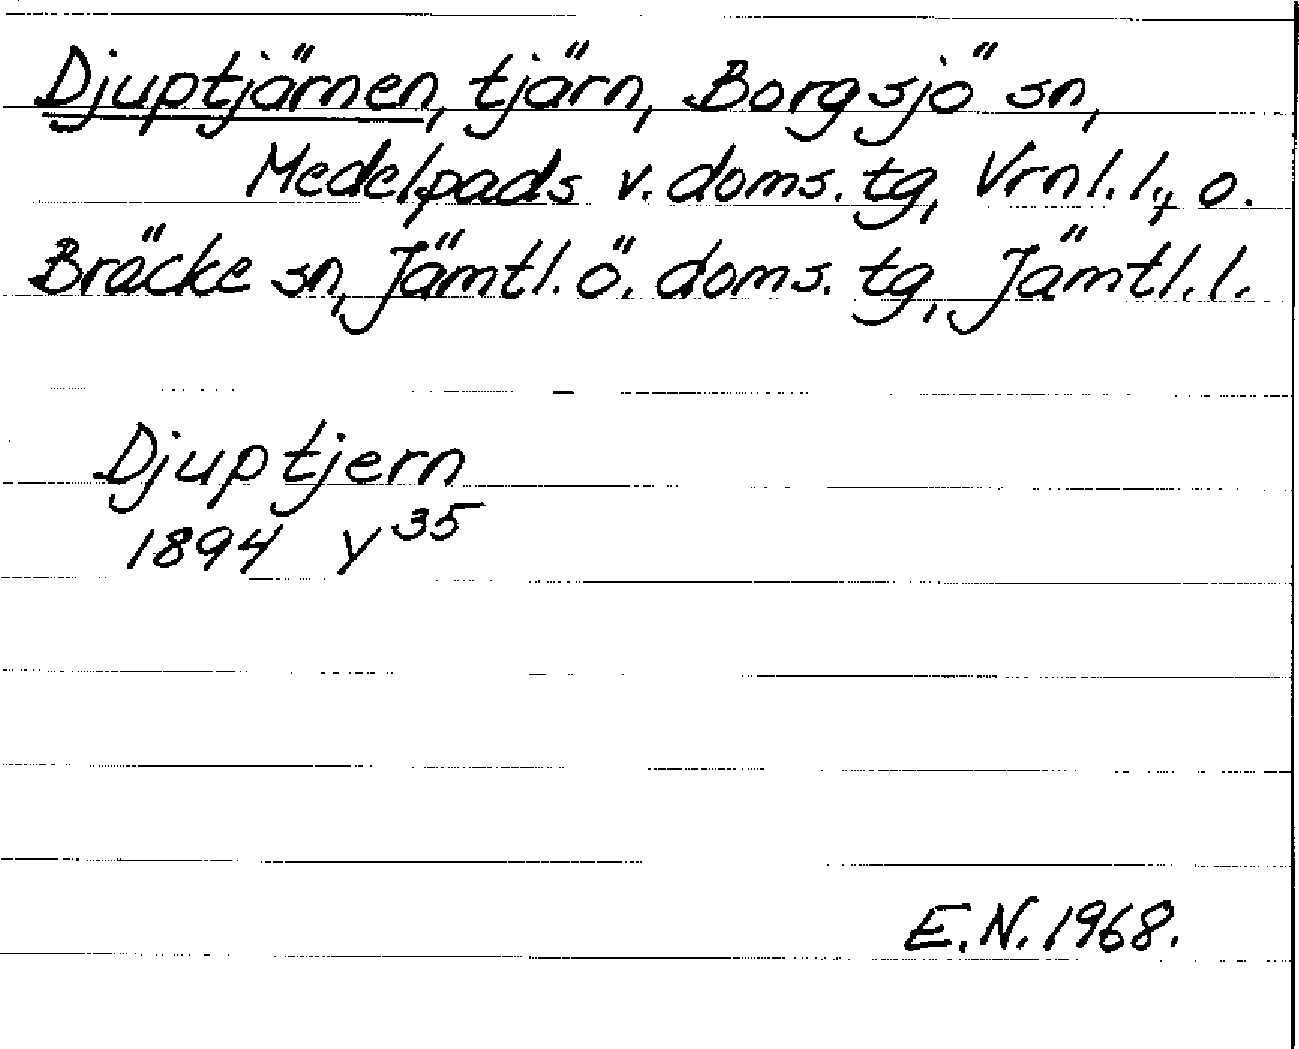 Djuptjärnen, tjärn, Borgsjö sn,
Medelpads v. doms. tg, Vrnl. l., o.
Bräcke sn, Jämtl. ö. doms. tg, Jämtl. l.
Djuptjern
1894 y 35
E.N. 1968.